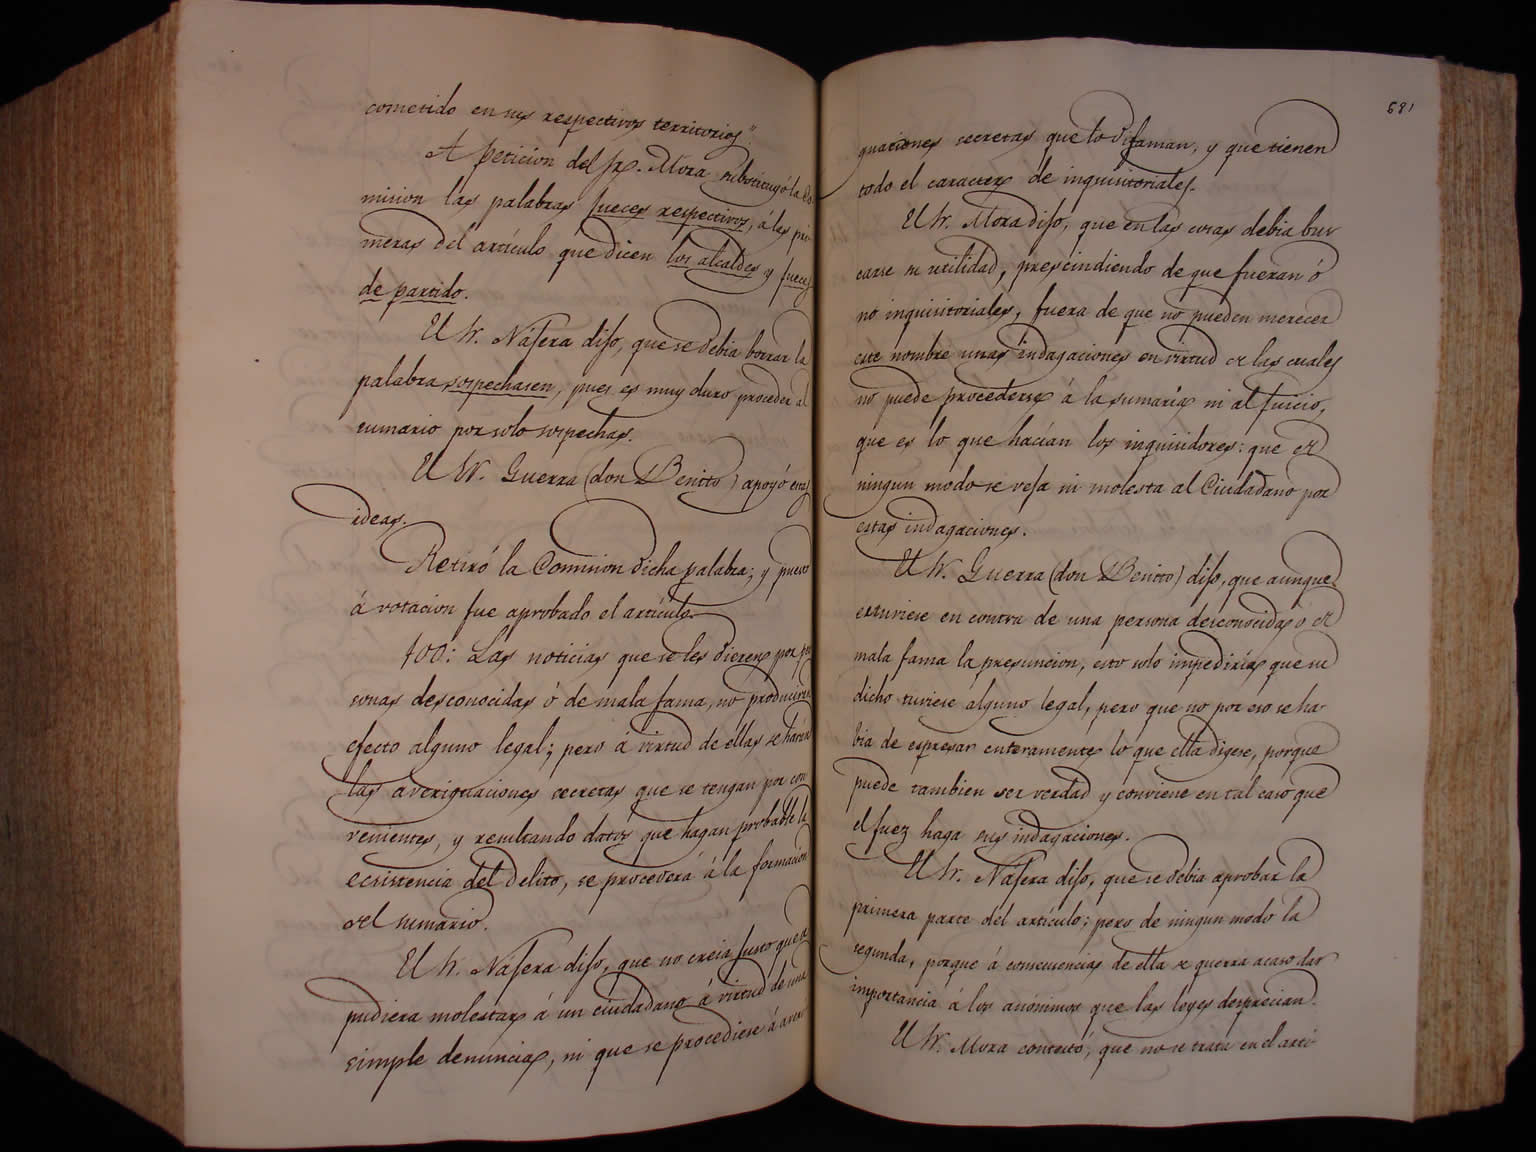 cometido en sus respectivos territorios"
A peticion del Sr. Mora substituyó la Co
mision las palabras jueces respectivos, á las pri
meras del artículo que dicen los alcaldes y jueces
de partido.
El Sr. Nájera dijo, que se debia borrar la
palabra sospechasen, pues es muy duro proceder al
sumario por solo sospechas.
El Sr. Guerra (don Benito) apoyó estas
ideas.
Retiró la Comision dicha palabra; y puesto
á votacion fue aprobado el artículo.
100: Las noticias que se les dieren por per
sonas desconocidas ó de mala fama, no producirán
efecto alguno legal; pero á virtud de ellas se harán
las averiguaciones secretas que se tengan por con
venientes, y resultando datos que hagan probable la
ecsistencia del delito, se procederá á la formacion
del sumario.
El Sr. Nájera dijo, que no creia justo que se
pudiera molestar á un ciudadano á virtud de una
simple denuncia, ni que se procediese á averi
681
guaciones secretas que lo difaman, y que tienen
todo el caracter de inquisitoriales.
El Sr. Mora dijo, que en las cosas debia bus
carse su utilidad, prescindiendo de que fueran ó
no inquisitoriales, fuera de que no pueden merecer
este nombre unas indagaciones en virtud de las cuales
no puede procederse á la sumaria ni al juicio,
que es lo que hacían los inquisidores: que de
ningun modo se veja ni molesta al Ciudadano por
estas indagaciones.
El Sr. Guerra (don Benito) dijo, que aunque
estuviese en contra de una persona desconocida ó de
mala fama la presuncion, esto solo impediría que su
dicho tuviese alguno legal, pero que no por eso se ha
bia de espresar enteramente lo que ella digese, porque
puede tambien ser verdad y conviene en tal caso que
el juez haga sus indagaciones.
El Sr. Nájera dijo, que se debia aprobar la
primera parte del artículo; pero de ningun modo la
segunda, porque á consecuencia de ella se querra acaso dar
importancia á los anónimos que las leyes desprecian.
El Sr. Mora contestó, que no se trata en el arti